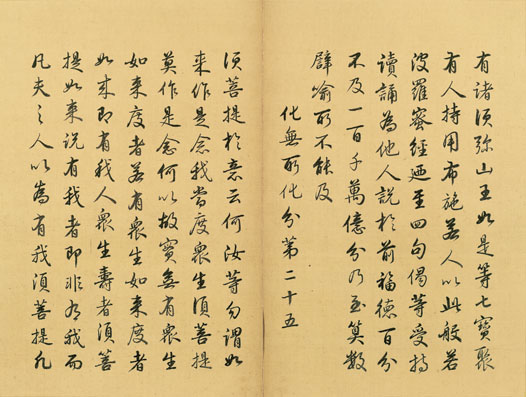 有諸須弥山王如是等七寶聚
有人持用布施若人以此般若
波羅蜜經廼至四句偈等受持
讀誦為他人説於前福德百分
不及一百千萬億分乃至筭數
譬喻所不能及
化無所化分第二十五
須菩提於意云何汝等勿謂如
来作是念我當度衆生須菩提
莫作是念何以故實無有衆生
如来度者若有衆生如来度者
如来即有我人衆生壽者須菩
提如来説有我者即非有我而
凡夫之人以為有我須菩提凡